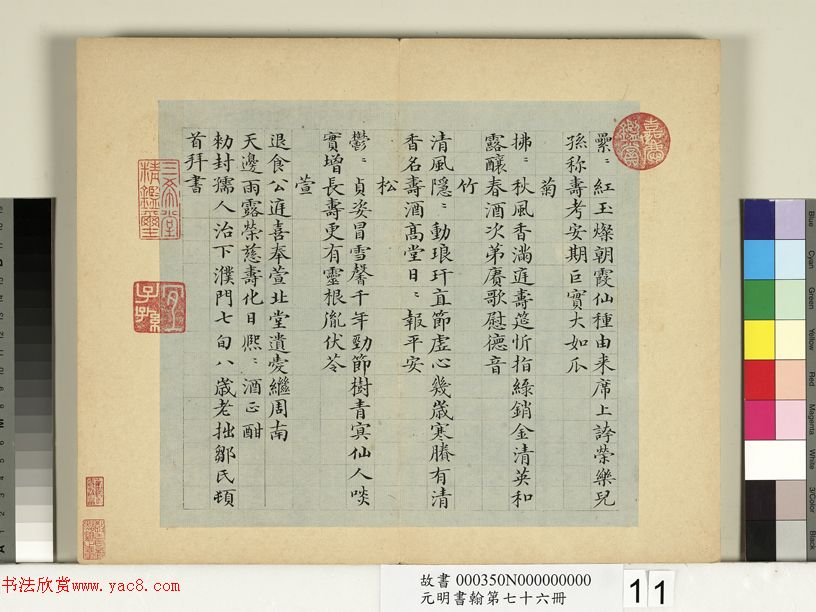 纍〻紅玉燦朝霞仙種由来席上誇榮樂兒
孫称壽考安期巨實大如瓜
菊
拂〻秋風香滿庭壽筵忻指綠銷金清英和
露釀春酒次第賡歌慰德音
竹
清風隱〻動琅玕直節虛心幾歲寒賸有清
香名壽酒髙堂日〻報平安
松
鬱〻貞姿冒雪馨千年勁節樹青㝠仙人啖
實增長壽更有靈根胤伏苓
萱
退食公庭喜奉萱北堂遺愛繼周南
天邊雨露榮慈壽化日熈〻酒正酣
勑封孺人治下濮門七旬八歲老拙鄒氏頓
首拜書
嘉慶鑑賞
三希堂精鑑璽
宜子孫
书法欣赏www.yac8.com
故書 000350N000000000
元明書翰第七十六冊
11
Blue
Cyan
Green
Yellow
Red
Magenta
White
3/Color
Black